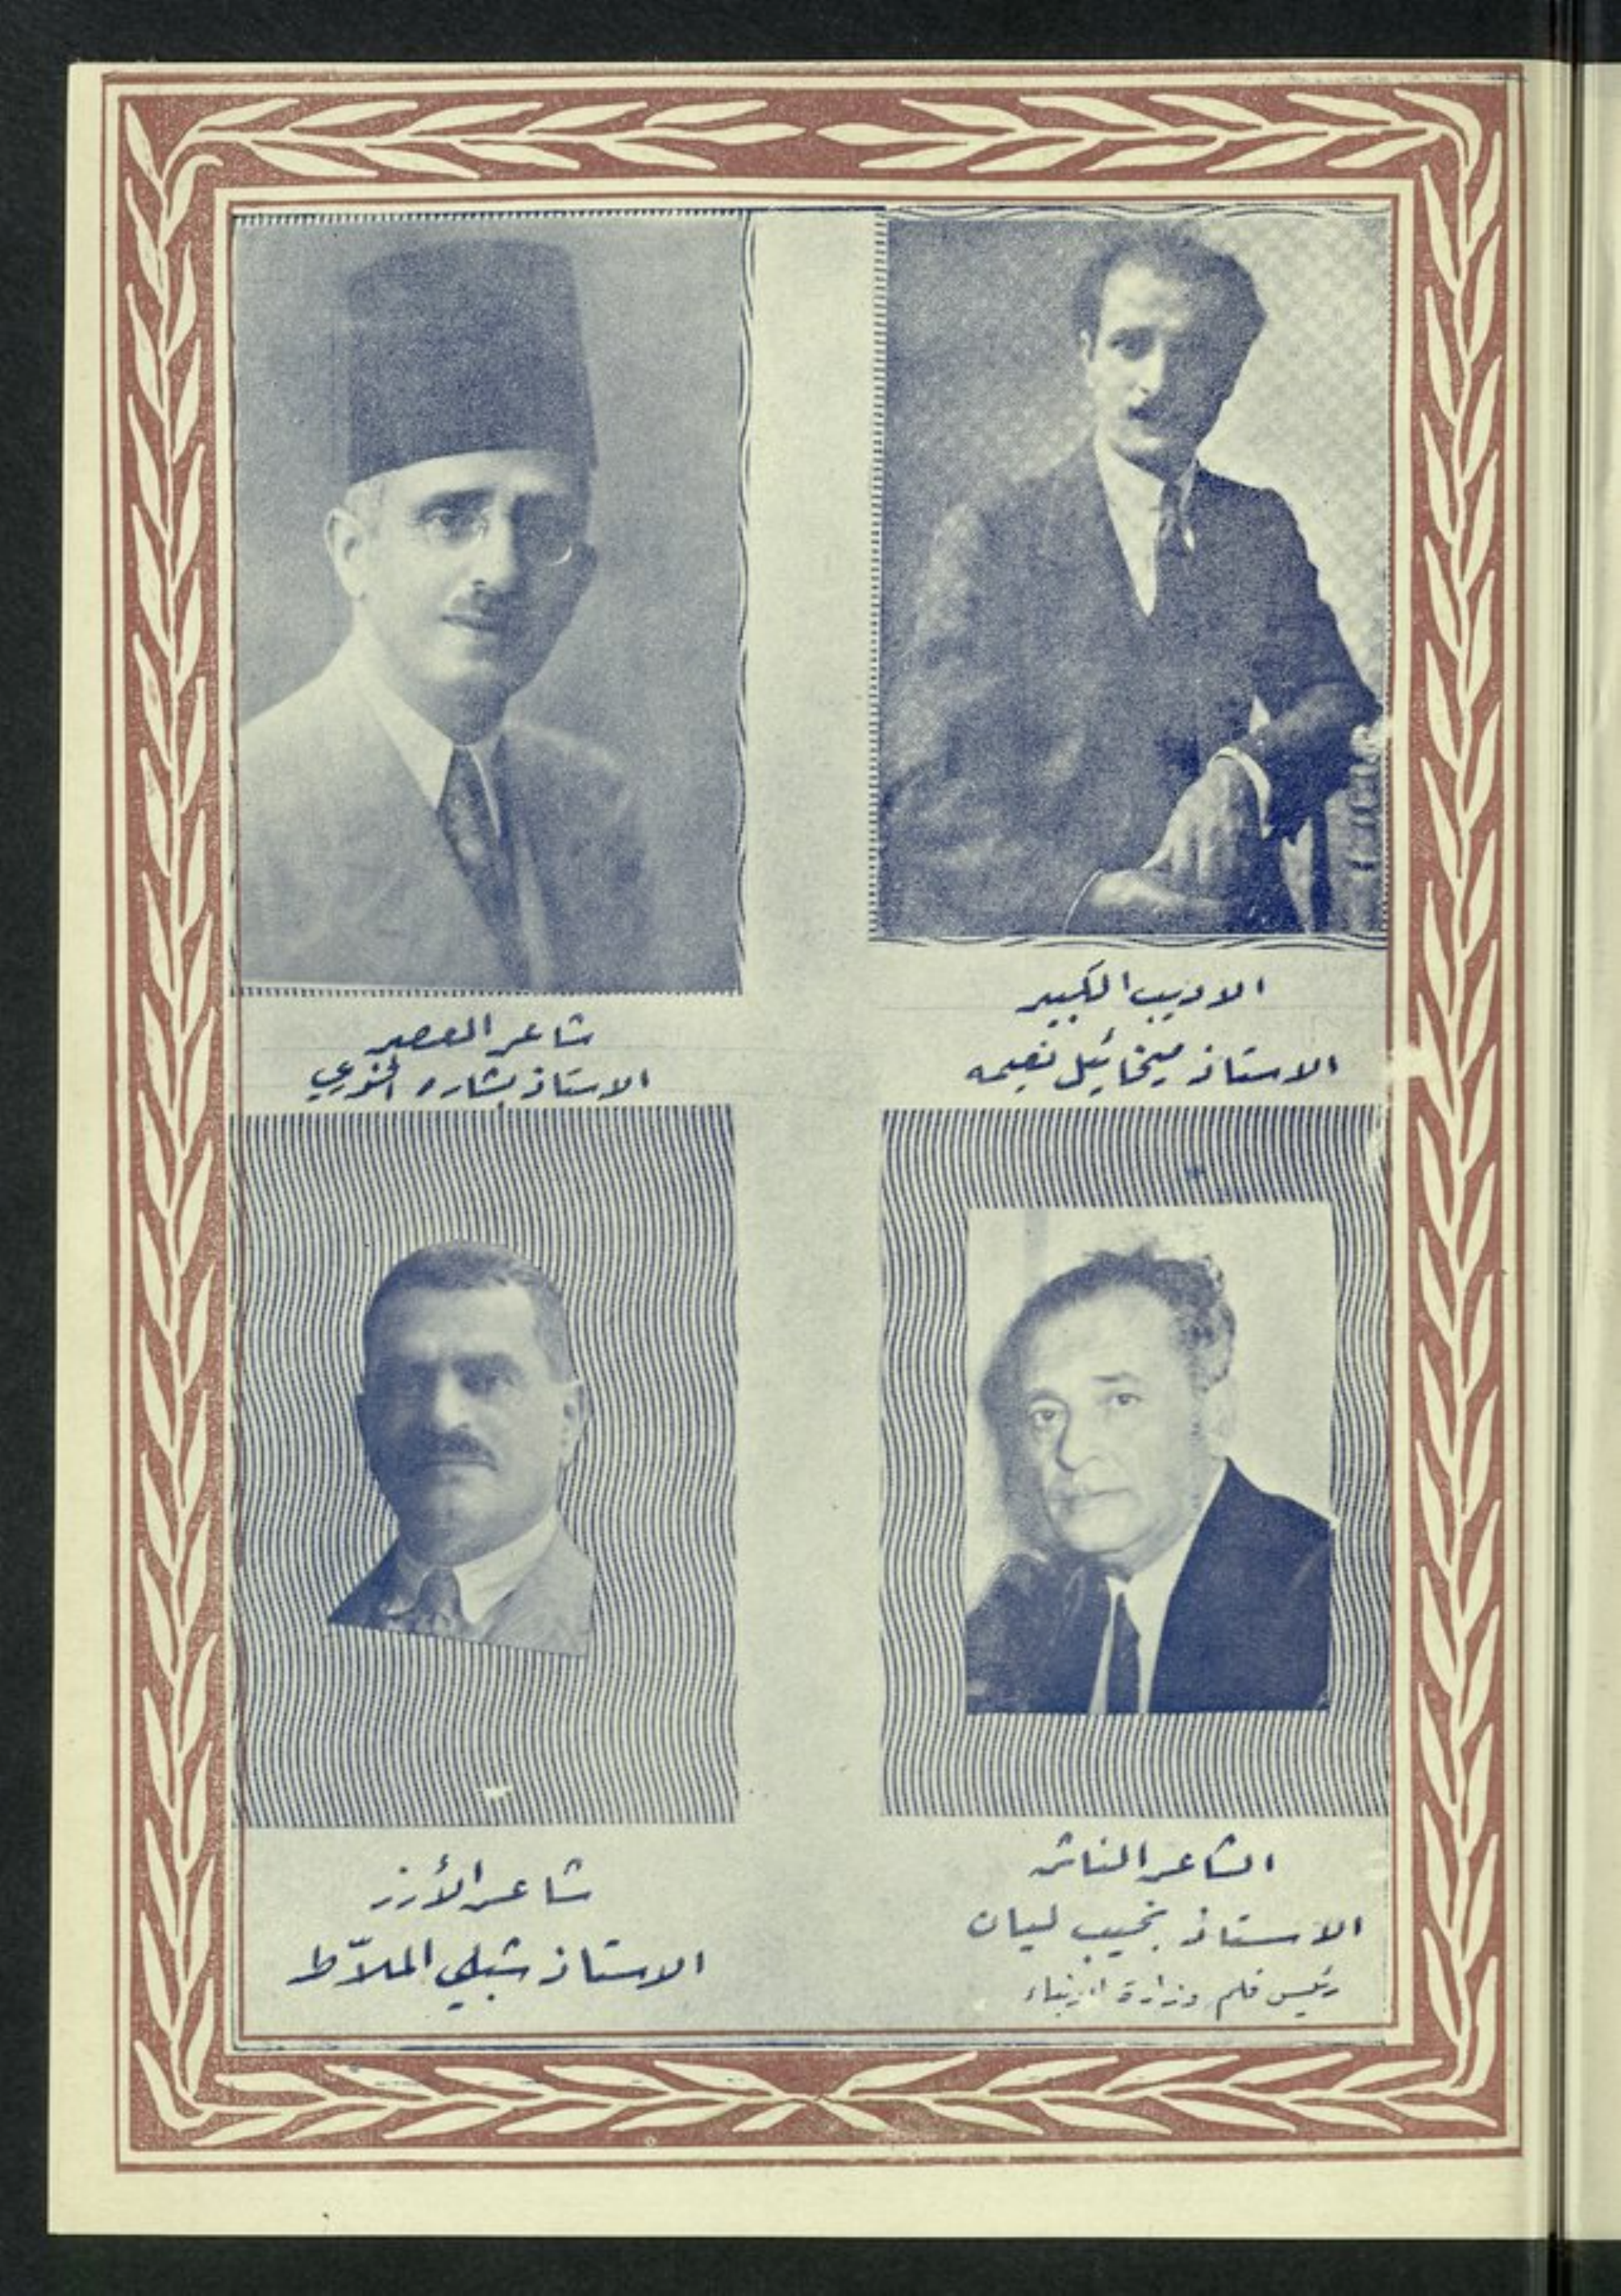 الاديب الكبير
الاستاذ ميخائيل نعيمه
شاعر العصر
الاستاذ بشاره الخوري
الشاعر الناثر
الاستاذ نجيب ليان
رئيس قلم وزارة الانباء
شاعر الأرز
الاستاذ شبلي الملاّط